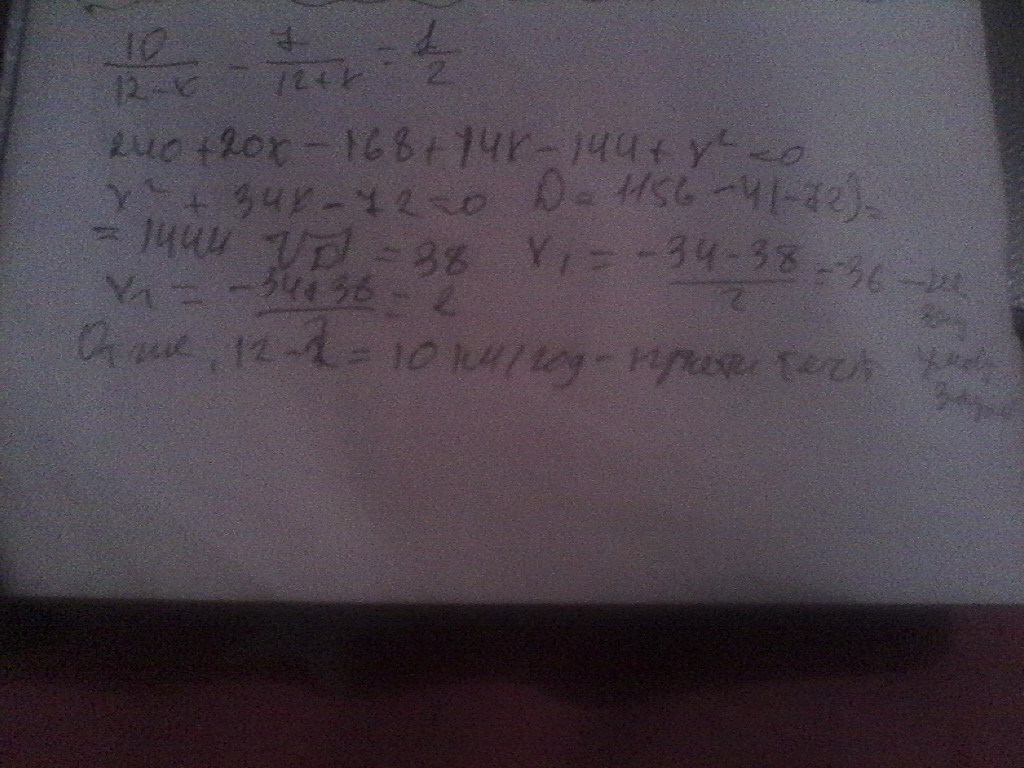 10/(12-x) - 7/(12+x) = 1/2
240+20x-168+14x-144+x²=0
x²+34x-72=0 D=1156-4(-72)=
=1444 √D=38 x₁=(-34-38)/2=-36 -не
x₁=(-34+38)/2=2
Отже, 12-2=10 км/год -